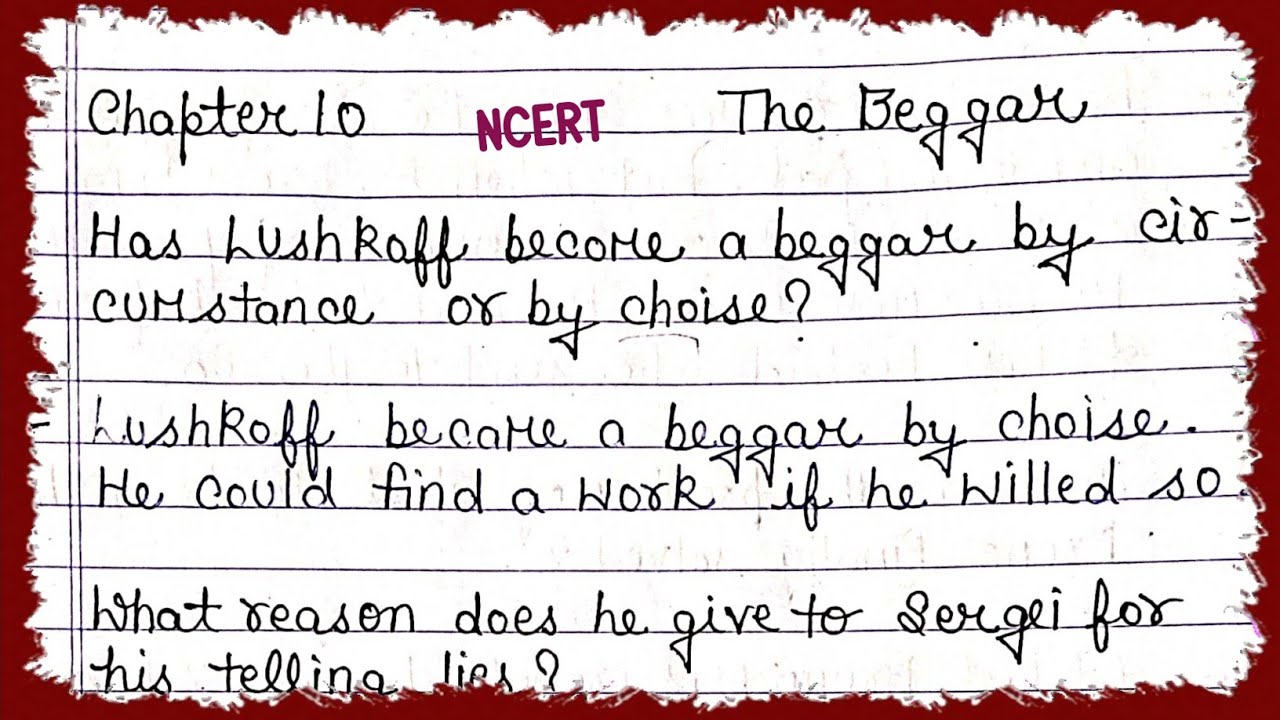 Chapter 10 NCERT The Beggar
Has Lushkoff become a beggar by cir-
cumstance or by choise?
- Lushkoff became a beggar by choise.
He could find a work if he willed so.
What reason does he give to Sergei for
his telling lies?